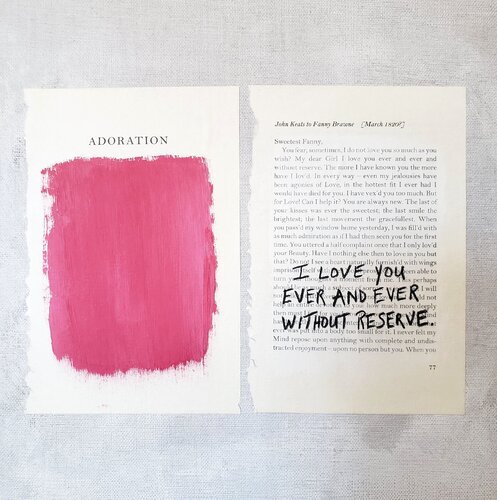 ADORATION
John Keats to Fanny Brawne [March 1820?]
Sweetest Fanny,
You fear, sometimes, I do not love you so much as you
wish? My dear Girl I love you ever and ever and
without reserve. The more I have known you the more
have I lov'd. In every way—even my jealousies have
been agonies of Love, in the hottest fit I ever had I
would have died for you. I have vex'd you too much. But
for Love! Can I help it? You are always new. The last of
your kisses was ever the sweetest; the last smile the
brightest; the last movement the gracefullest. When
you pass'd my window home yesterday, I was fill'd with
as much admiration as if I had then seen you for the first
time. You uttered a half complaint once that I only lov'd
your Beauty. Have I nothing else then to love in you but
that? Do not I see a heart naturally furnish'd with wings
I LOVE YOU
EVER AND EVER
WITHOUT RESERVE.
ever was put into a body too small for it. I never felt my
Mind repose upon anything with complete and undis-
tracted enjoyment—upon no person but you. When you
77